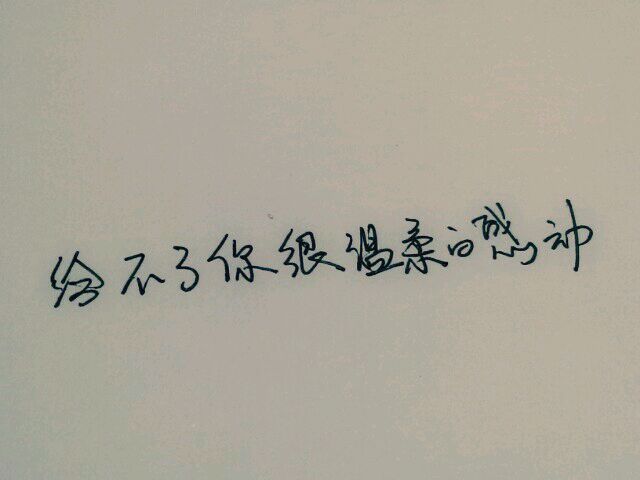 给不了你很温柔的感动